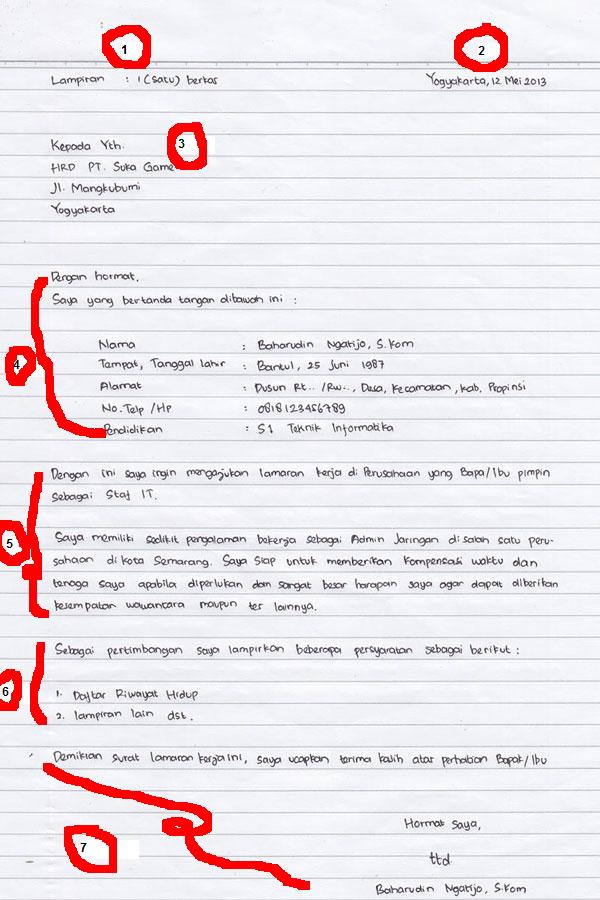 1
2
Lampiran : 1 (satu) berkas
Yogyakarta, 12 Mei 2013
Kepada Yth.
3
HRD PT. Suka Game
Jl. Mangkubumi
Yogyakarta
Dengan hormat,
Saya yang bertanda tangan dibawah ini :
Nama : Baharudin Ngatijo, S.Kom
4
Tempat, Tanggal lahir : Bantul, 25 Juni 1987
Alamat : Dusun Rt.. /Rw.., Desa, Kecamatan, Kab, Propinsi
No.Telp /Hp : 0818123456789
Pendidikan : S1 Teknik Informatika
Dengan ini saya ingin mengajukan lamaran kerja di Perusahaan yang Bapa/Ibu pimpin
Sebagai Staf IT.
5
Saya memiliki sedikit pengalaman bekerja sebagai Admin Jaringan di salah satu peru-
sahaan di kota Semarang. Saya Siap untuk memberikan kompensasi waktu dan
tenaga saya apabila diperlukan dan sangat besar harapan saya agar dapat diberikan
kesempatan wawancara maupun tes lainnya.
Sebagai pertimbangan saya lampirkan beberapa persyaratan sebagai berikut :
6
1. Daftar Riwayat Hidup
2. lampiran lain dst.
Demikian surat lamaran kerja ini, saya ucapkan terima kasih atas perhatian Bapak/Ibu
Hormat Saya,
7
ttd
Baharudin Ngatijo, S.Kom